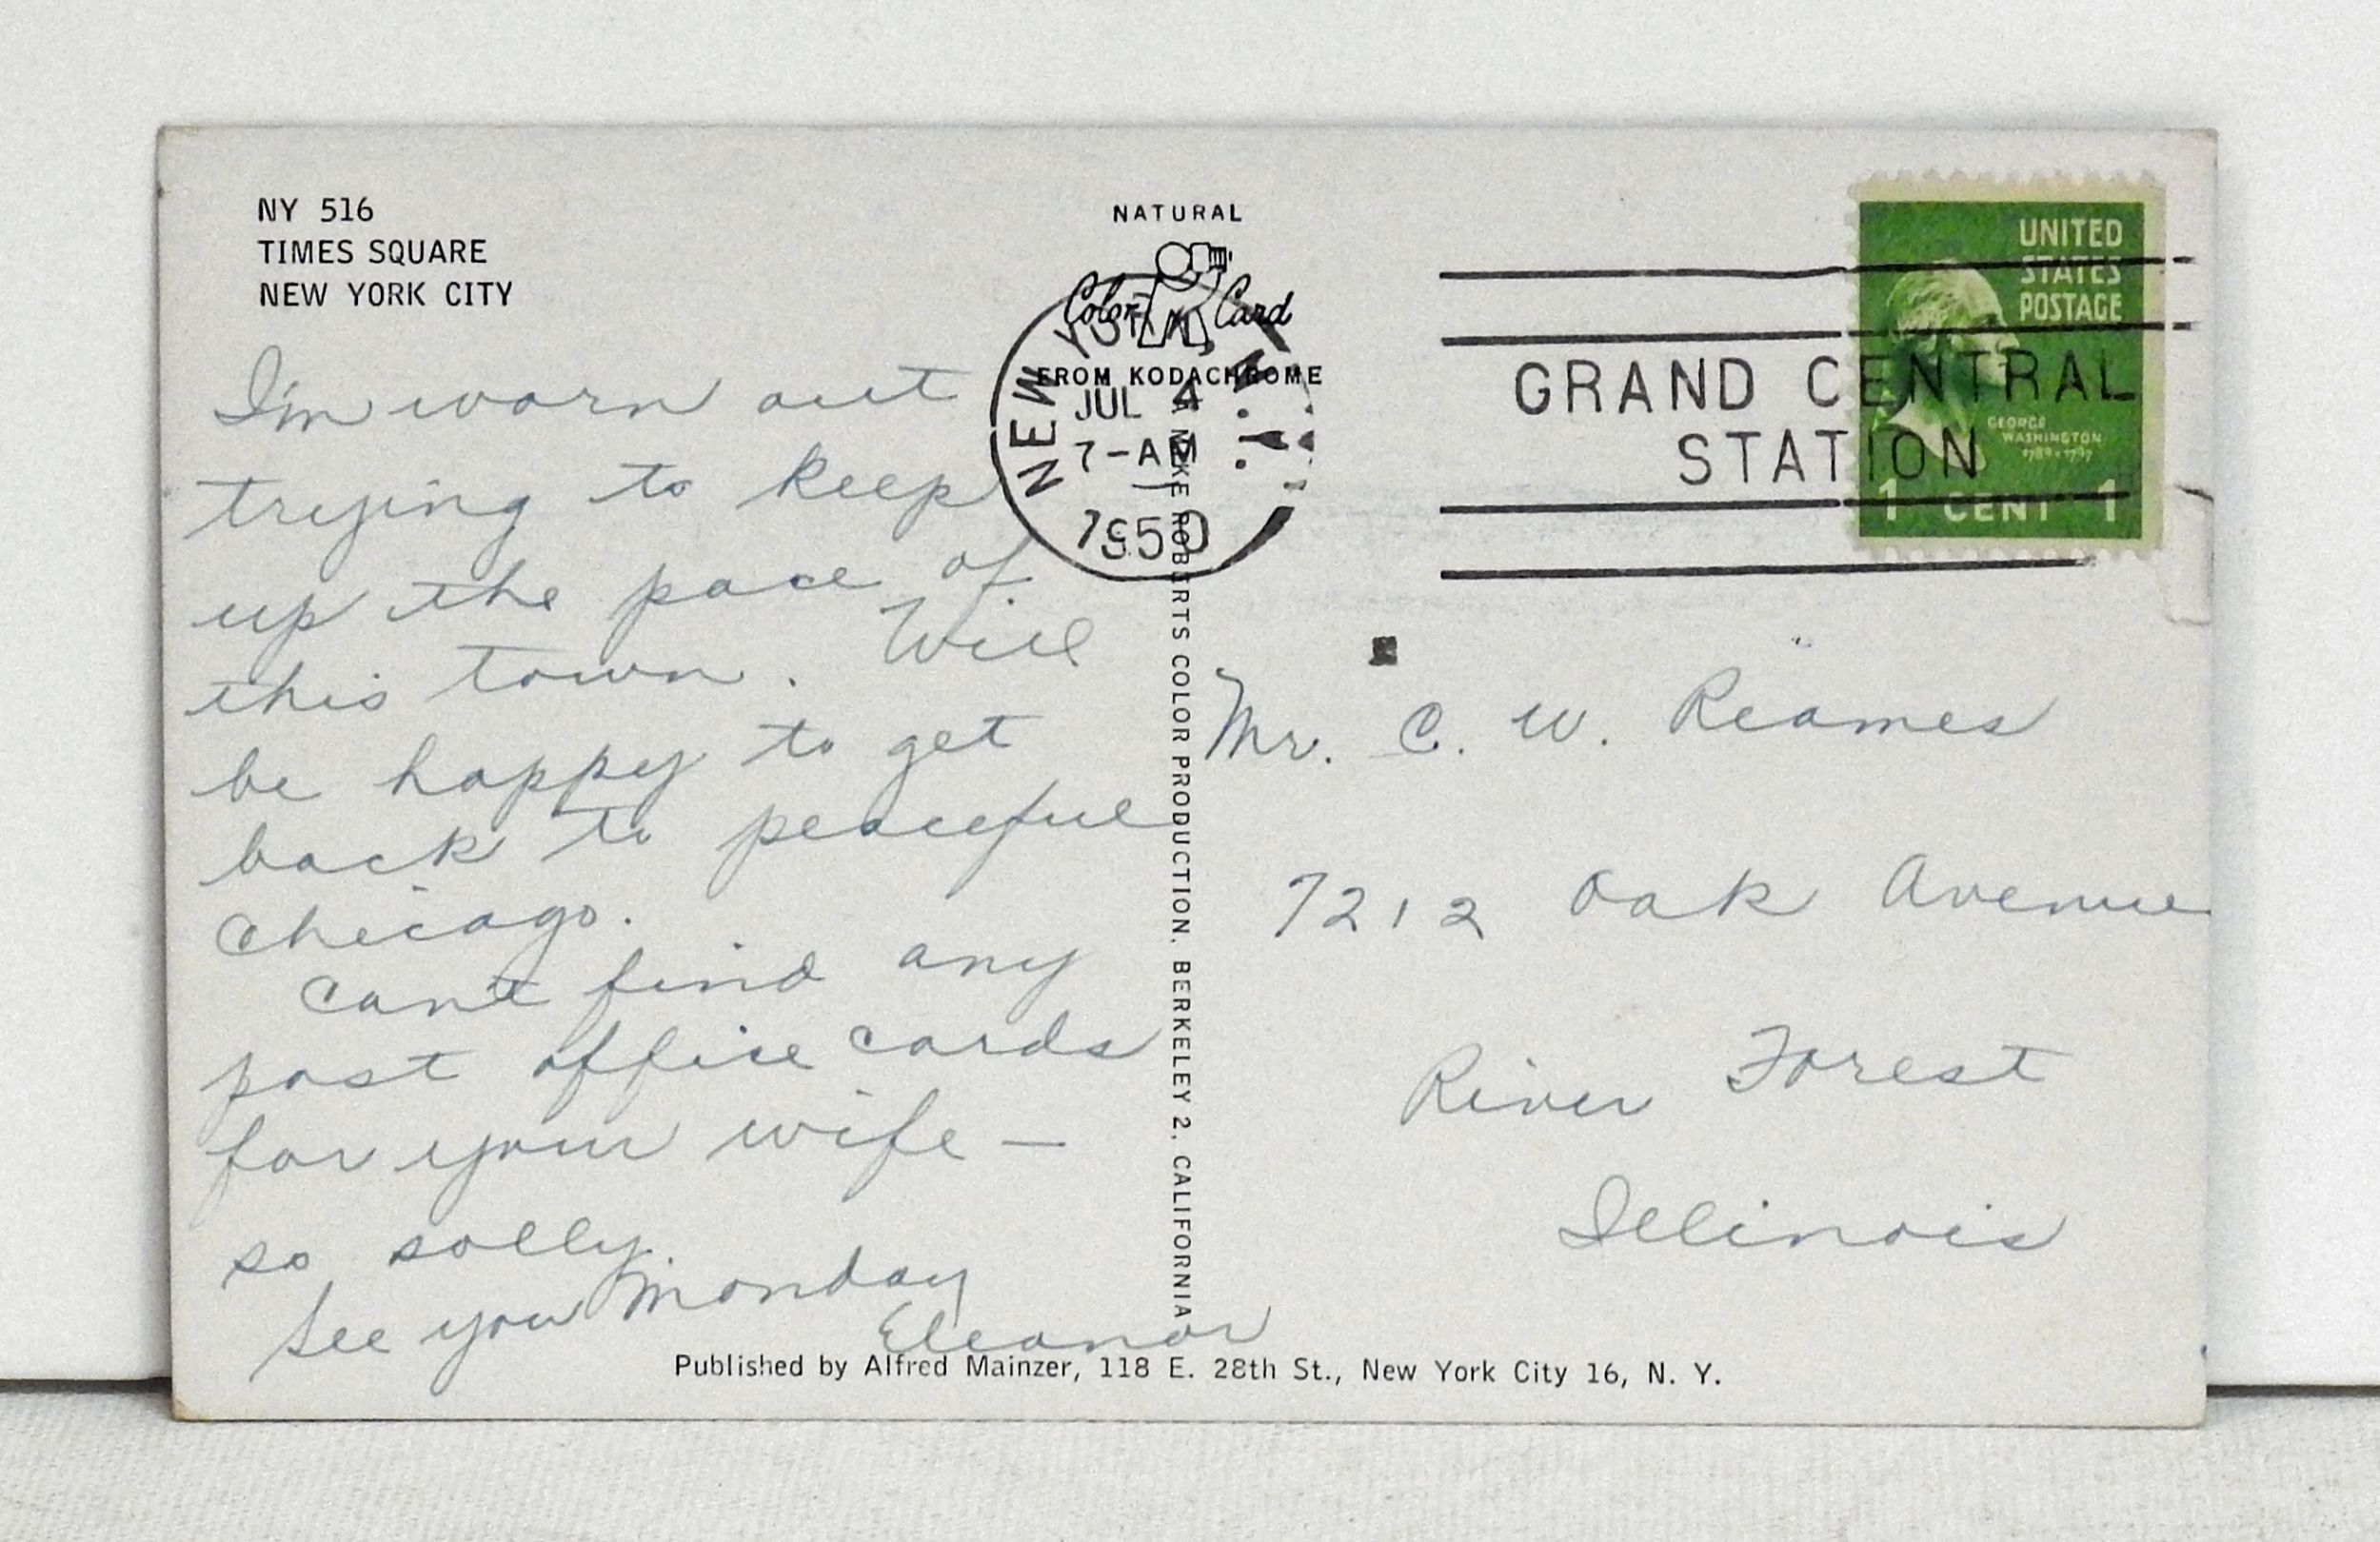 NY 516
TIMES SQUARE
NEW YORK CITY
I'm worn out
trying to keep
up the pace of
this town. Will
be happy to get
back to peaceful
Chicago.
Cant find any
post office cards
for your wife —
so solly.
See you Monday
Eleanor
NATURAL
Color Card
FROM KODACHROME
NEW YORK, N.Y.
JUL 4
7-AM
1950
A MIKE ROBERTS COLOR PRODUCTION, BERKELEY 2, CALIFORNIA
GRAND CENTRAL
STATION
UNITED
STATES
POSTAGE
GEORGE
WASHINGTON
1789-1797
1 CENT 1
Mr. C. W. Reames
7212 Oak Avenue
River Forest
Illinois
Published by Alfred Mainzer, 118 E. 28th St., New York City 16, N. Y.